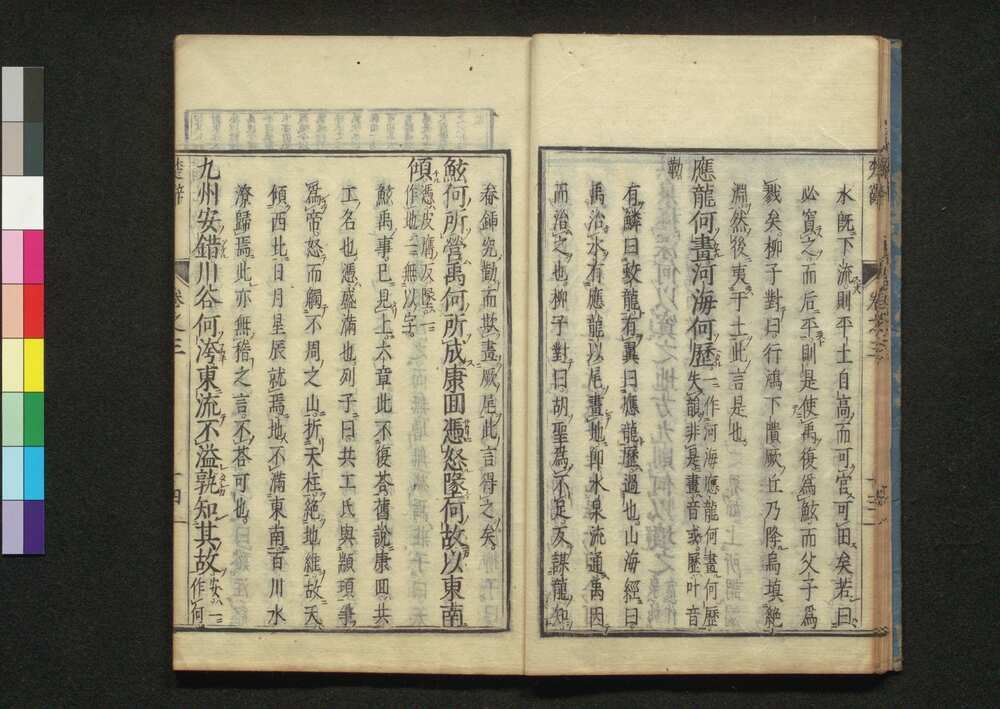 水旣下流則平土自高而可官可田矣若曰
必窴之而后平則是使禹復爲鮌而父子爲
戮矣柳子對曰行鴻下隤厥丘乃降烏塡絶
淵然後夷于土此言是也
應龍何畫河海何歷一作河海應龍何畫何歷
失韻非是畫音或歷叶音
勒
有鱗曰蛟龍有翼曰應龍歷過也山海經曰
禹治水有應龍以尾畫地卽水泉流通禹因
而治之也柳子對曰胡聖爲不足反謀龍知
畚鍤究勤而欺畫厥尾此言得之矣
鮌何所營禹何所成康回憑怒墬何故以東南
傾憑皮膺反墬一
作地一無以字
鮌禹事已見上六章此不復荅舊說康回共
工名也憑盛滿也列子曰共工氏與顓頊爭
爲帝怒而觸不周之山折天柱絶地維故天
傾西北日月星辰就焉地不滿東南百川水
潦歸焉此亦無稽之言不荅可也
九州安錯川谷何洿東流不溢孰知其故安一
作何
楚辭
卷之三
十三
楚辭
卷之三
十四